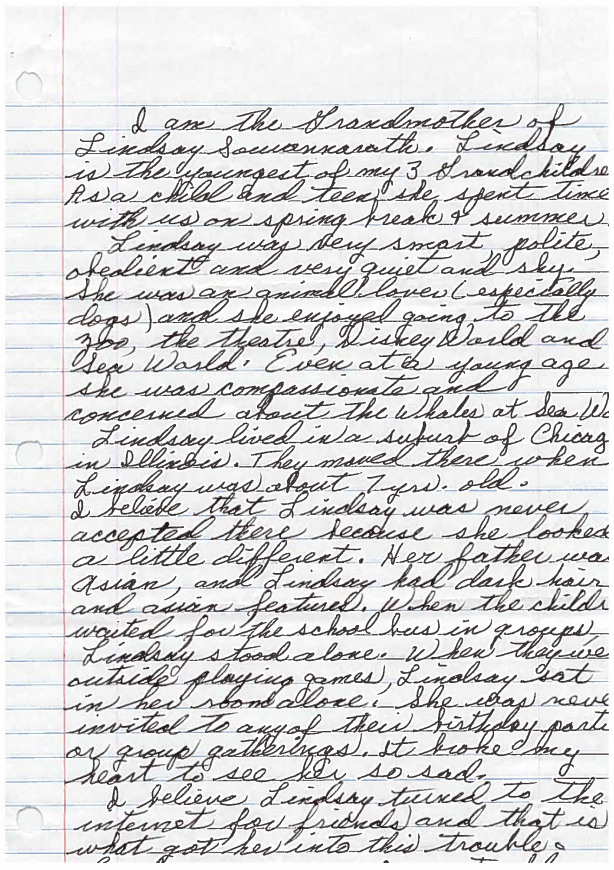 I am the Grandmother of
Lindsay Souvannarath. Lindsay
is the youngest of my 3 Grandchildre
As a child and teen, she spent time
with us on spring break & summer
Lindsay was very smart, polite,
obedient and very quiet and shy.
She was an animal lover (especially
dogs) and she enjoyed going to the
zoo, the theatre, Disney World and
Sea World. Even at a young age
she was compassionate and
concerned about the whales at Sea Wo
Lindsay lived in a suburb of Chicag
in Illinois. They moved there when
Lindsay was about 7 yrs. old.
I believe that Lindsay was never
accepted there because she looked
a little different. Her father was
Asian, and Lindsay had dark hair
and asian features. When the childr
waited for the school bus in groups,
Lindsay stood alone. When they we
outside playing games, Lindsay sat
in her room alone. She was neve
invited to any of their birthday parti
or group gatherings. It broke my
heart to see her so sad.
I believe Lindsay turned to the
internet for friends and that is
what got her into this trouble.